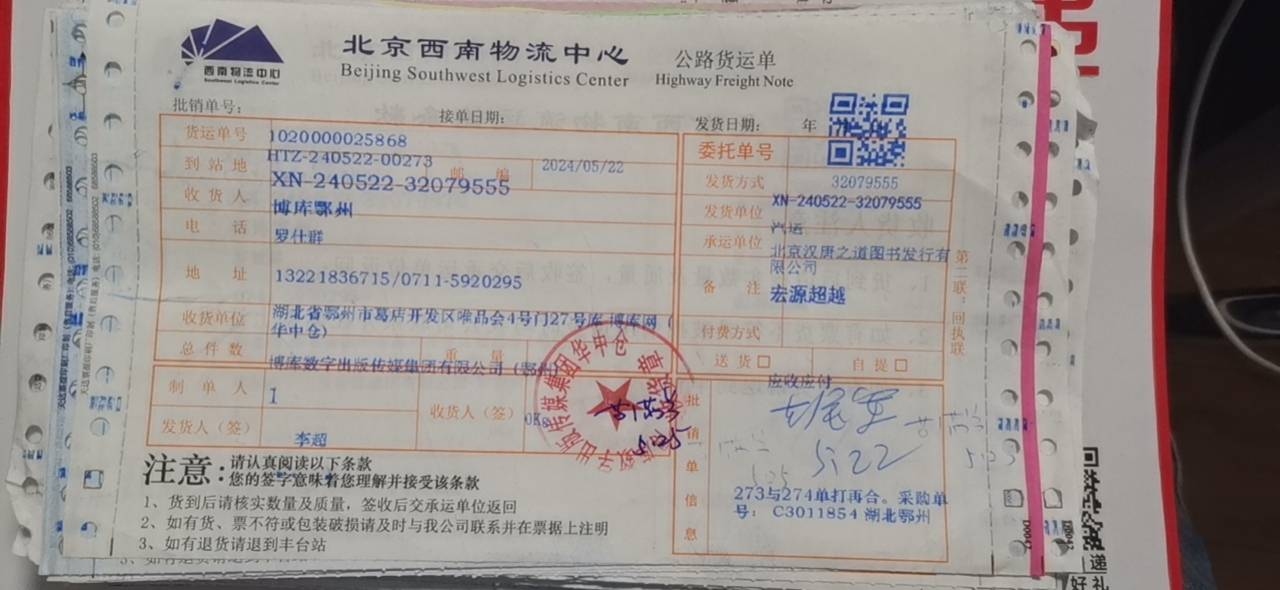 北京西南物流中心
Beijing Southwest Logistics Center
公路货运单
Highway Freight Note
西南物流中心
Southwest Logistics Center
批销单号:
接单日期:
发货日期: 年
货运单号 1020000025868
到站地 HTZ-240522-00273 邮编 2024/05/22
收货人 XN-240522-32079555
博库鄂州
电话 罗仕群
地址 13221836715/0711-5920295
收货单位 湖北省鄂州市葛店开发区唯品会4号门27号库 博库网(
华中仓)
总件数 重量
博库数字出版传媒集团有限公司(鄂州)
制单人 1
收货人(签) 0Kg
发货人(签) 李超
委托单号
发货方式 32079555
发货单位 XN-240522-32079555
汽运
承运单位 北京汉唐之道图书发行有
限公司
备注 宏源超越
付费方式
送货□ 自提□
应收应付
批销单信息
5.22
273与274单打再合。采购单
号: C3011854 湖北鄂州
第二联:回执联
注意:
请认真阅读以下条款
您的签字意味着您理解并接受该条款
1、货到后请核实数量及质量,签收后交承运单位返回
2、如有货、票不符或包装破损请及时与我公司联系并在票据上注明
3、如有退货请退到丰台站